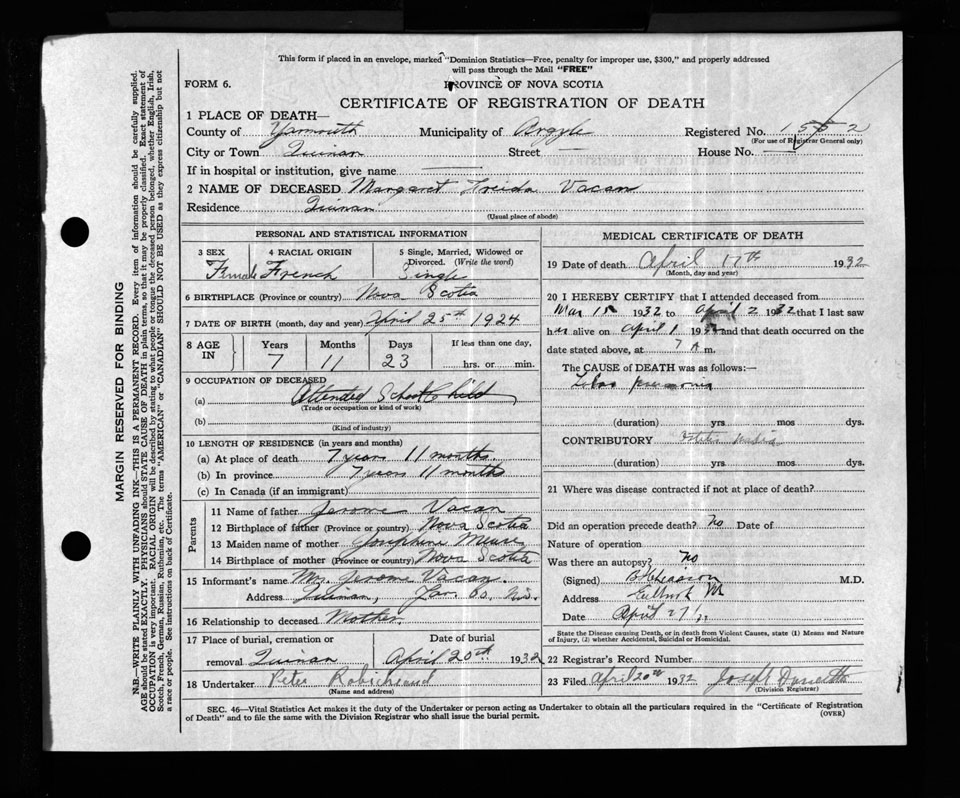 This form if placed in an envelope, marked "Dominion Statistics—Free, penalty for improper use, $300," and properly addressed
will pass through the Mail "FREE"
FORM 6.
PROVINCE OF NOVA SCOTIA
CERTIFICATE OF REGISTRATION OF DEATH
1 PLACE OF DEATH—
County of Yarmouth Municipality of Argyle Registered No.
(For use of Registrar General only)
City or Town Quinan Street — House No. —
If in hospital or institution, give name
2 NAME OF DECEASED Margaret Freida Vacan
Residence Quinan
(Usual place of abode)
PERSONAL AND STATISTICAL INFORMATION
3 SEX 4 RACIAL ORIGIN 5 Single, Married, Widowed or Divorced. (Write the word)
Female French Single
6 BIRTHPLACE (Province or country) Nova Scotia
7 DATE OF BIRTH (month, day and year) April 25th 1924
8 AGE IN Years Months Days If less than one day,
7 11 23 hrs. or min.
9 OCCUPATION OF DECEASED
(a) Attended School Child
(Trade or occupation or kind of work)
(b)
(Kind of industry)
10 LENGTH OF RESIDENCE (in years and months)
(a) At place of death 7 years 11 months.
(b) In province 7 years 11 months
(c) In Canada (if an immigrant)
Parents
11 Name of father Jerome Vacan
12 Birthplace of father (Province or country) Nova Scotia
13 Maiden name of mother Josephine Meuse
14 Birthplace of mother (Province or country) Nova Scotia
15 Informant's name Mrs. Jerome Vacan.
Address Quinan, Yar. Co. N.S.
16 Relationship to deceased Mother.
17 Place of burial, cremation or removal Quinan Date of burial April 20th 1932
18 Undertaker Peter Robichaud
(Name and address)
MEDICAL CERTIFICATE OF DEATH
19 Date of death April 17th 1932
(Month, day and year)
20 I HEREBY CERTIFY that I attended deceased from
Mar 15 1932 to April 2 1932 that I last saw
her alive on April 1 19 and that death occurred on the
date stated above, at 7 A m.
The CAUSE of DEATH was as follows:—
Lobar pneumonia
(duration) yrs mos dys.
CONTRIBUTORY Otitis Media
(duration) yrs. mos. dys.
21 Where was disease contracted if not at place of death?
Did an operation precede death? No Date of
Nature of operation
Was there an autopsy? No
(Signed) M.D.
Address
Date April 27
State the Disease causing Death, or in death from Violent Causes, state (1) Means and Nature
of Injury, (2) whether Accidental, Suicidal or Homicidal.
22 Registrar's Record Number
23 Filed April 20th 1932 Joseph
(Division Registrar)
SEC. 46—Vital Statistics Act makes it the duty of the Undertaker or person acting as Undertaker to obtain all the particulars required in the "Certificate of Registration
of Death" and to file the same with the Division Registrar who shall issue the burial permit.
(OVER)
MARGIN RESERVED FOR BINDING
N.B.—WRITE PLAINLY WITH UNFADING INK—THIS IS A PERMANENT RECORD. Every item of information should be carefully supplied.
AGE should be stated EXACTLY. PHYSICIANS should STATE CAUSE OF DEATH in plain terms, so that it may be properly classified. Exact statement of
OCCUPATION is very important. RACIAL ORIGIN will be described by stating to what people or tongue the deceased person belonged, whether English, Irish,
Scotch, French, German, Russian, Ruthenian, etc. The terms "AMERICAN" or "CANADIAN" SHOULD NOT BE USED as they express citizenship but not
a race or people. See instructions on back of Certificate.